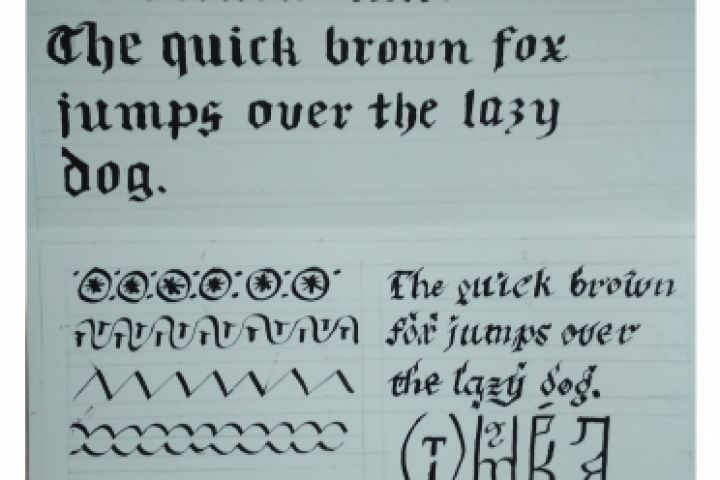 The quick brown fox
jumps over the lazy
dog.
The quick brown
fox jumps over
the lazy dog.